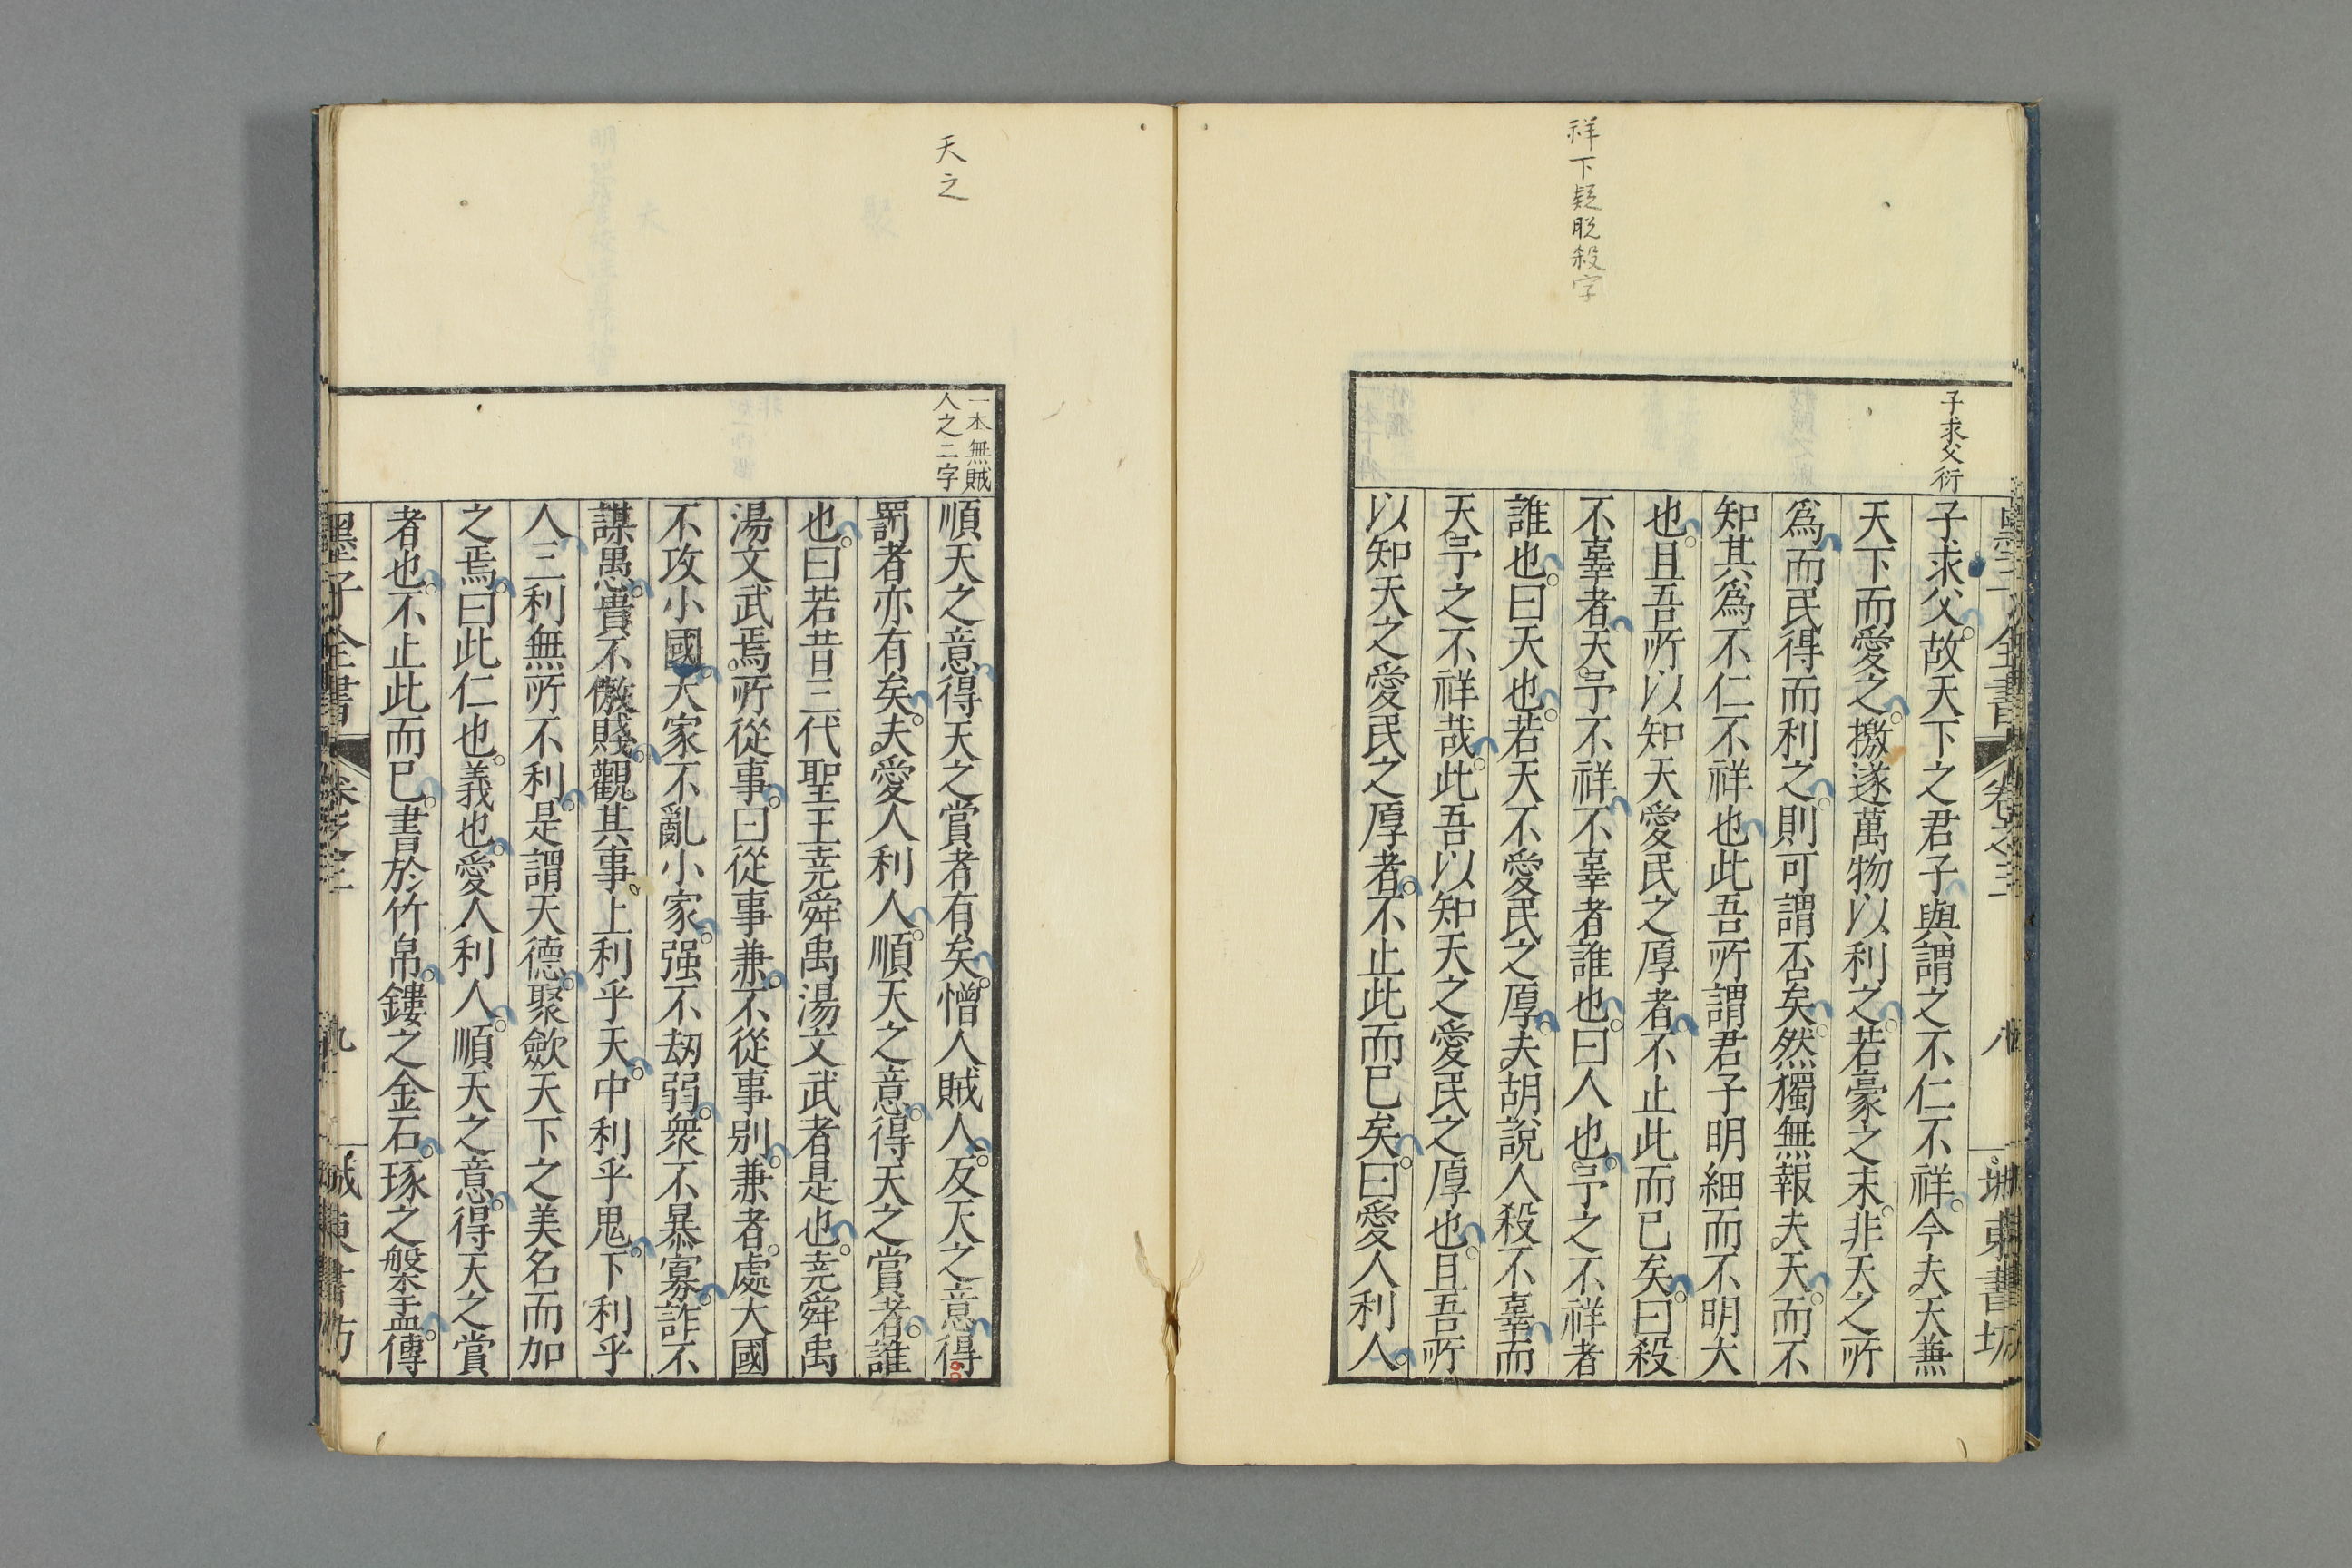 祥下疑脱殺字
子求父衍
墨子全書
卷之三
八
城東書坊
子求父。故天下之君子與謂之不仁不祥。今夫天兼
天下而愛之。撽遂萬物以利之。若豪之末。非天之所
爲而民得而利之。則可謂否矣。然獨無報夫天。而不
知其爲不仁不祥也。此吾所謂君子明細而不明大
也。且吾所以知天愛民之厚者。不止此而已矣。曰殺
不辜者。天予不祥。不辜者誰也。曰人也。予之不祥者
誰也。曰天也。若天不愛民之厚。夫胡說人殺不辜。而
天予之不祥哉。此吾以知天之愛民之厚也。且吾所
以知天之愛民之厚者。不止此而已矣。曰愛人利人。
天之
一本無賊
人之二字
順天之意。得天之賞者有矣。憎人賊人。反天之意。得
罰者亦有矣。夫愛人利人。順天之意。得天之賞者。誰
也。曰若昔三代聖王堯舜禹湯文武者是也。堯舜禹
湯文武焉所從事。曰從事兼。不從事别。兼者。處大國
不攻小國。大家不亂小家。强不劫弱。衆不暴寡。詐不
謀愚。貴不傲賤。觀其事。上利乎天。中利乎鬼。下利乎
人。三利無所不利。是謂天德。聚歛天下之美名而加
之焉。曰此仁也。義也。愛人利人。順天之意。得天之賞
者也。不止此而已。書於竹帛。鏤之金石。琢之槃盂。傳
墨子全書
卷之三
九
城東書坊